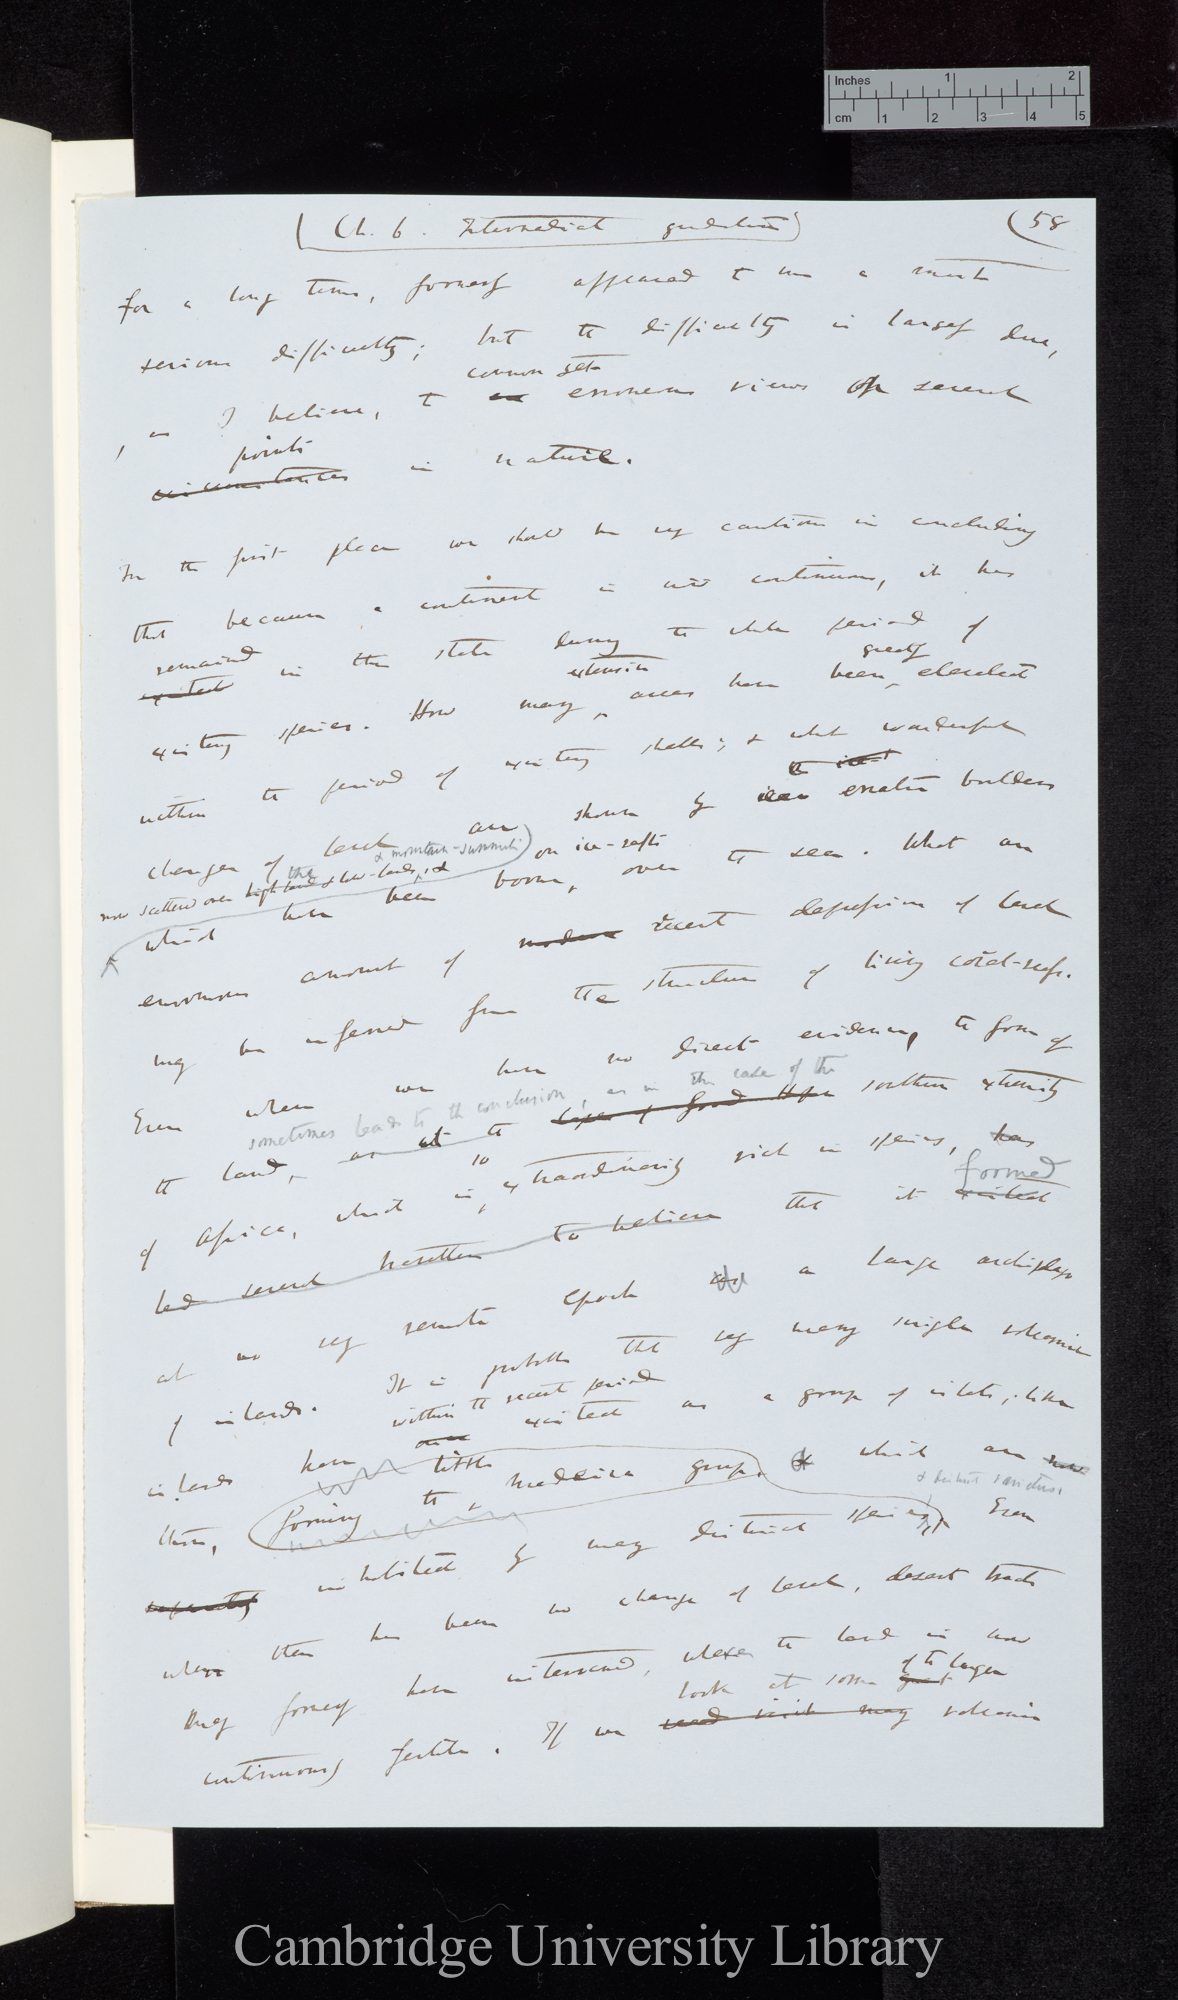 Inches 1 2
cm 1 2 3 4 5
(Ch. 6. Intermediate gradations) (58
for a long time, formerly appeared to me a most
serious difficulty; but the difficulty is largely due,
common
, as I believe, to erroneous views of several
points
circumstances in nature.
In the first place we should be very cautious in concluding
that because a continent is now continuous, it has
remained
existed in this state during the whole period of
extensive greatly
existing species. How many areas have been elevated
within the period of existing shells; & what wonderful
changes of level are shown by erratic boulders
& mountain-summits) on ice-rafts
now scattered over the high land & low-lands, &
which have been borne, over the sea. What an
enormous amount of modern recent depression of level
may be inferred from the structure of living coral-reefs.
Even when we have no direct evidence, the form of
sometimes leads to the conclusion, as in the case of the
the land, as at the Cape of Good Hope southern extremity
so
of Africa, which is, extraordinarily rich in species, has
formed
led several to believe that it existed
at no very remote epoch as a large archipelago
of islands. It is probable that very many single volcanic
within the recent period
islands have existed as a group of islets, like
one little
those, forming the Madeira group, & which are now
& distinct varieties.
separately inhabited by many distinct species. Even
where there has been no change of level, desert tracts
may formerly have intervened, where the land is now
look at some great of the larger
continuously fertile. If we read visit may volcanic
Cambridge University Library